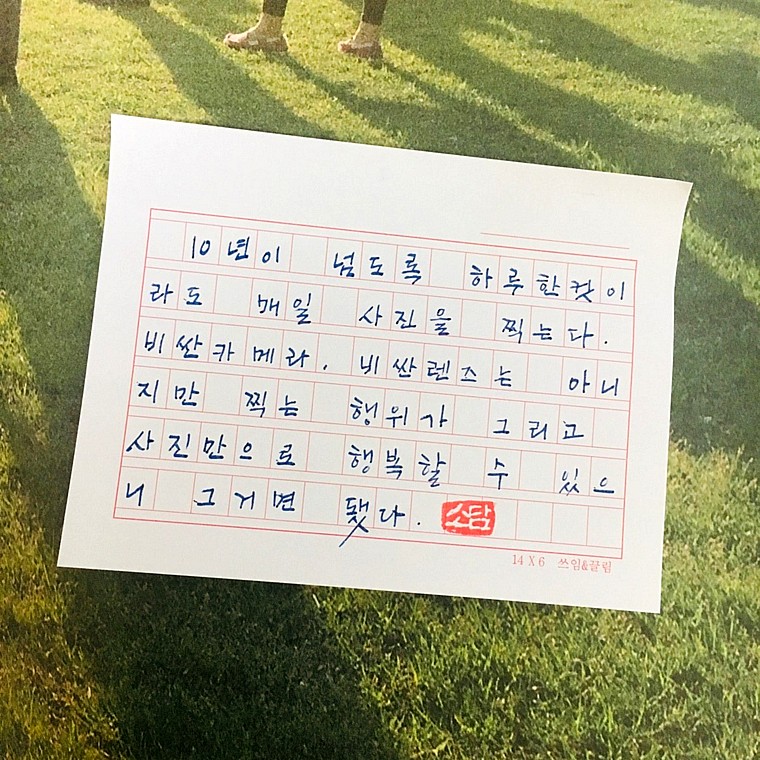 10년이 넘도록 하루한컷이
라도 매일 사진을 찍는다.
비싼카메라, 비싼렌즈는 아니
지만 찍는 행위가 그리고
사진만으로 행복할 수 있으
니 그거면 됐다. 소담
14 X 6 쓰임&끌림